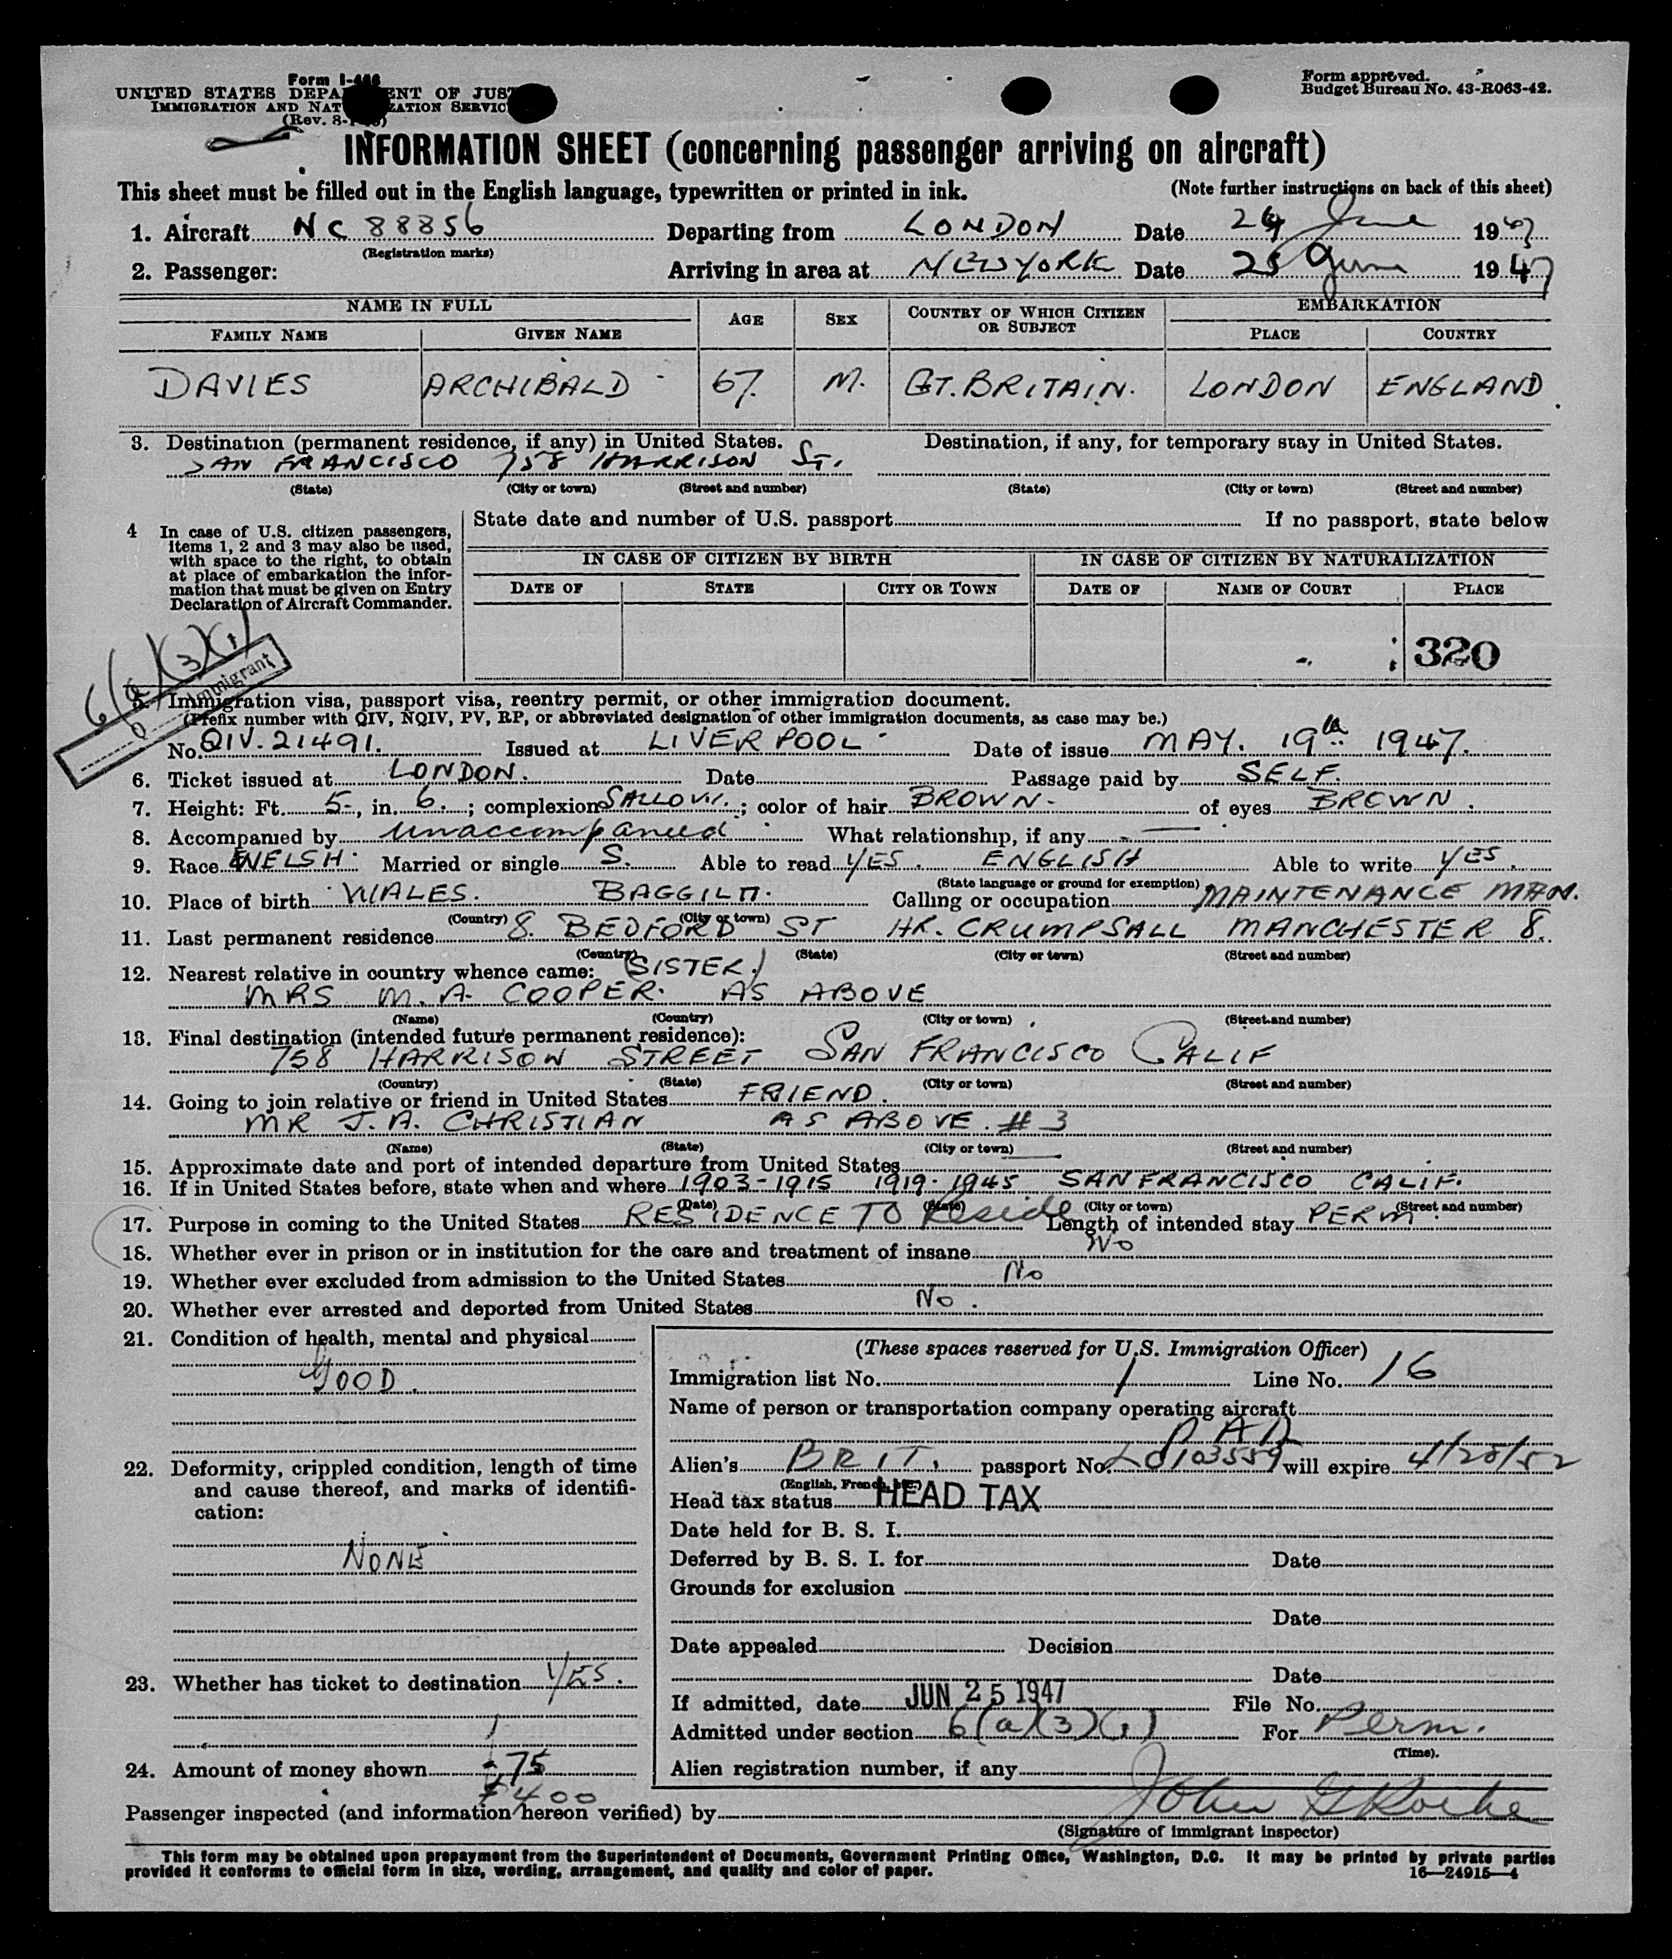 Form I-466
UNITED STATES DEPARTMENT OF JUSTICE
IMMIGRATION AND NATURALIZATION SERVICE
(Rev. 8-
Form approved.
Budget Bureau No. 43-R063-42.
INFORMATION SHEET (concerning passenger arriving on aircraft)
This sheet must be filled out in the English language, typewritten or printed in ink. (Note further instructions on back of this sheet)
1. Aircraft NC 88856 Departing from LONDON Date 24 June 1947
(Registration marks)
2. Passenger: Arriving in area at NEW YORK Date 25 June 1947
NAME IN FULL AGE SEX COUNTRY OF WHICH CITIZEN OR SUBJECT EMBARKATION
FAMILY NAME GIVEN NAME PLACE COUNTRY
DAVIES ARCHIBALD 67. M. GT. BRITAIN. LONDON ENGLAND
3. Destination (permanent residence, if any) in United States. Destination, if any, for temporary stay in United States.
SAN FRANCISCO 758 HARRISON ST.
(State) (City or town) (Street and number) (State) (City or town) (Street and number)
4 In case of U.S. citizen passengers, items 1, 2 and 3 may also be used, with space to the right, to obtain at place of embarkation the information that must be given on Entry Declaration of Aircraft Commander.
State date and number of U.S. passport If no passport, state below
IN CASE OF CITIZEN BY BIRTH IN CASE OF CITIZEN BY NATURALIZATION
DATE OF STATE CITY OR TOWN DATE OF NAME OF COURT PLACE
320
6(a)(3)(1)
Immigrant
5. Immigration visa, passport visa, reentry permit, or other immigration document.
(Prefix number with QIV, NQIV, PV, RP, or abbreviated designation of other immigration documents, as case may be.)
No. QIV. 21491. Issued at LIVERPOOL Date of issue MAY. 19th 1947.
6. Ticket issued at LONDON. Date Passage paid by SELF.
7. Height: Ft. 5, in. 6. ; complexion SALLOW. ; color of hair BROWN. of eyes BROWN.
8. Accompanied by unaccompanied What relationship, if any —
9. Race WELSH. Married or single S. Able to read YES. ENGLISH Able to write YES.
(State language or ground for exemption)
10. Place of birth WALES. BAGGILT. Calling or occupation MAINTENANCE MAN.
(Country) (City or town)
11. Last permanent residence 8. BEDFORD ST HR. CRUMPSALL MANCHESTER 8.
(Country) (State) (City or town) (Street and number)
12. Nearest relative in country whence came: (SISTER.)
MRS M. A. COOPER. AS ABOVE
(Name) (Country) (City or town) (Street and number)
13. Final destination (intended future permanent residence):
758 HARRISON STREET SAN FRANCISCO CALIF
(Country) (State) (City or town) (Street and number)
14. Going to join relative or friend in United States FRIEND.
MR J. A. CHRISTIAN AS ABOVE. # 3
(Name) (State) (City or town) (Street and number)
15. Approximate date and port of intended departure from United States —
16. If in United States before, state when and where 1903-1915 1919-1945 SAN FRANCISCO CALIF.
(Date) (State) (City or town) (Street and number)
17. Purpose in coming to the United States RESIDENCE TO Reside Length of intended stay PERM.
18. Whether ever in prison or in institution for the care and treatment of insane No
19. Whether ever excluded from admission to the United States No
20. Whether ever arrested and deported from United States No.
21. Condition of health, mental and physical
GOOD.
22. Deformity, crippled condition, length of time and cause thereof, and marks of identification:
NONE
23. Whether has ticket to destination YES.
24. Amount of money shown 75
$400
(These spaces reserved for U.S. Immigration Officer)
Immigration list No. 1 Line No. 16
Name of person or transportation company operating aircraft
P A A
Alien's BRIT. passport No. L0103559 will expire 4/28/52
(English, French, etc.)
Head tax status HEAD TAX
Date held for B. S. I.
Deferred by B. S. I. for Date
Grounds for exclusion
Date
Date appealed Decision
Date
If admitted, date JUN 25 1947 File No.
Admitted under section 6(a)(3)(1) For Perm.
(Time).
Alien registration number, if any
Passenger inspected (and information hereon verified) by John G
(Signature of immigrant inspector)
This form may be obtained upon prepayment from the Superintendent of Documents, Government Printing Office, Washington, D.C. It may be printed by private parties
provided it conforms to official form in size, wording, arrangement, and quality and color of paper. 16—24915-4